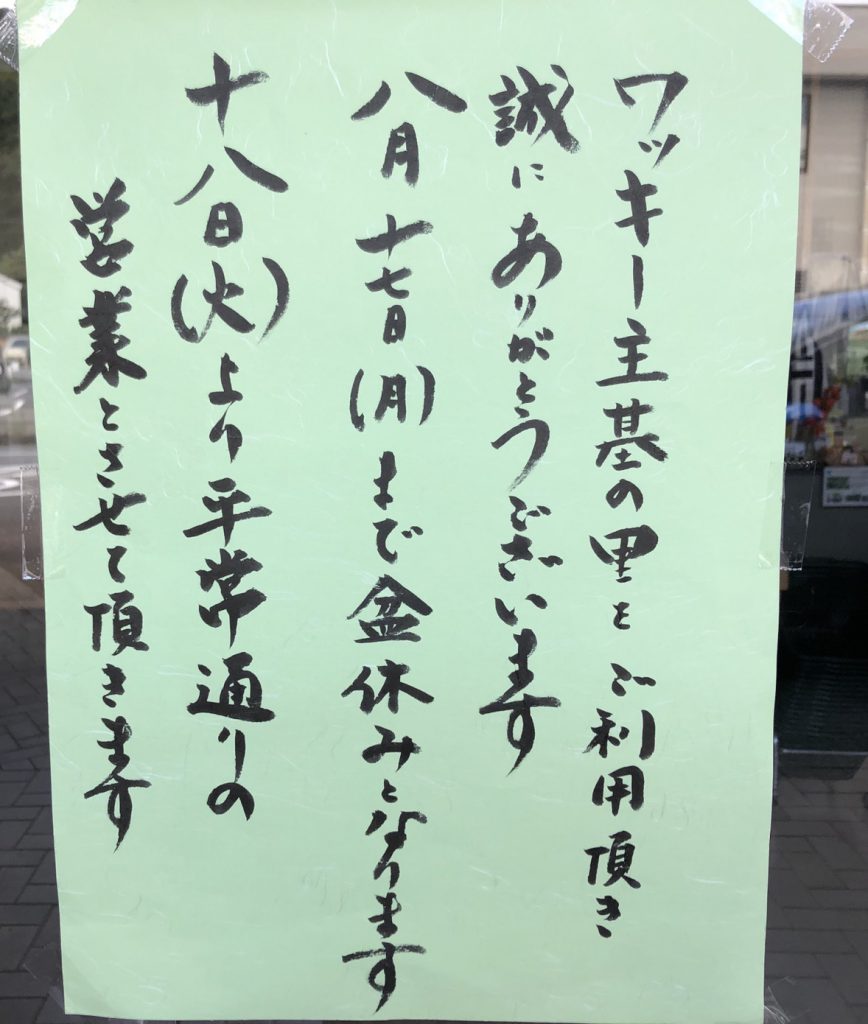 ワッキー主基の里をご利用頂き
誠にありがとうございます
八月十七日(月)まで盆休みとなります
十八日(火)より平常通りの
営業とさせて頂きます